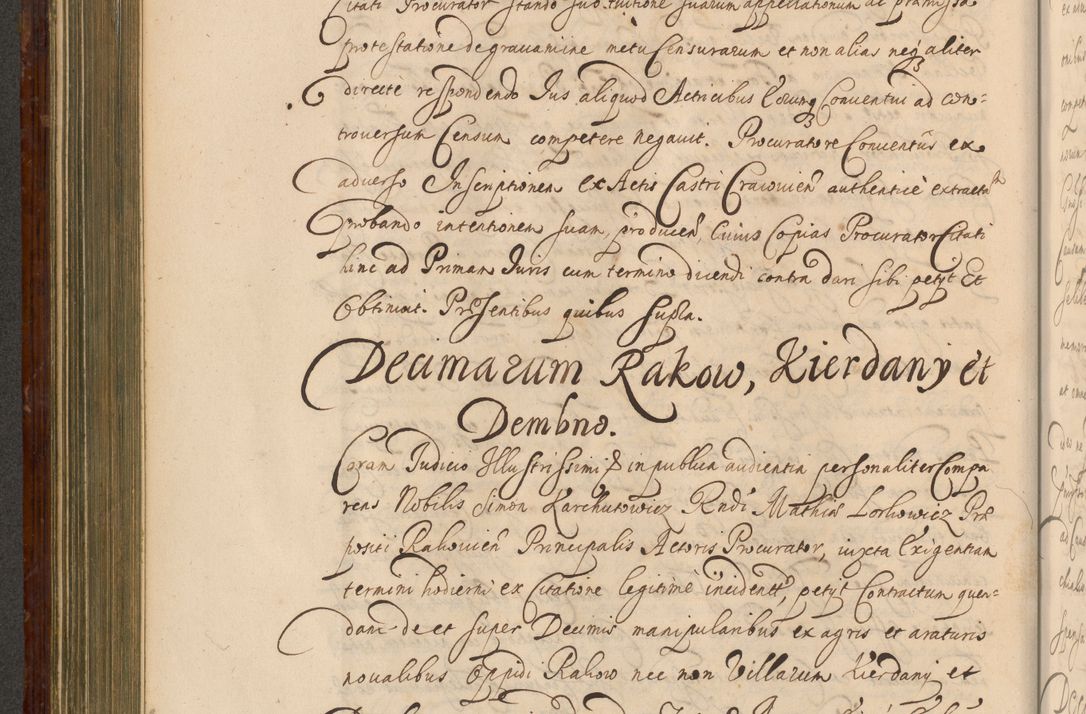 Citati Procurator stando sub tuitione suarum appellationum ac praemissa
protestatione de gravamine metu Censurarum et non alias neq3 aliter
directè respondendo Jus aliquod Actricibus Eorumq3 Conventui ad con:
troversum Censum competere negavit. Procuratore Conventûs ex
adverso Inscriptionem ex Actis Castri Cracovien̄ authenticè extractam
probando intentionem suam, producen̄ Cuius Copias Procurator Citati
hinc ad Primam Juris cum termino dicendi contra dari sibi petyt Et
Obtinuit. Praesentibus quibus supra.
Decimarum Rakow, Kierdany et
Dembno.
Coram Judicio Illustrissimi & in publica audientia personaliter Compa
rens Nobilis Simon Karchutowicz Rndi Mathiae Lorkowicz Prae
positi Rakovien̄ Principalis Actoris Procurator, iuxta Exigentiam
termini hodierni ex Citatione legitimè incident̄, petyt Contractum quen:
dam de et super Decimis manipularibus ex agris et araturis
novalibus Oppidi Rakow nec non Villarum Kierdany et